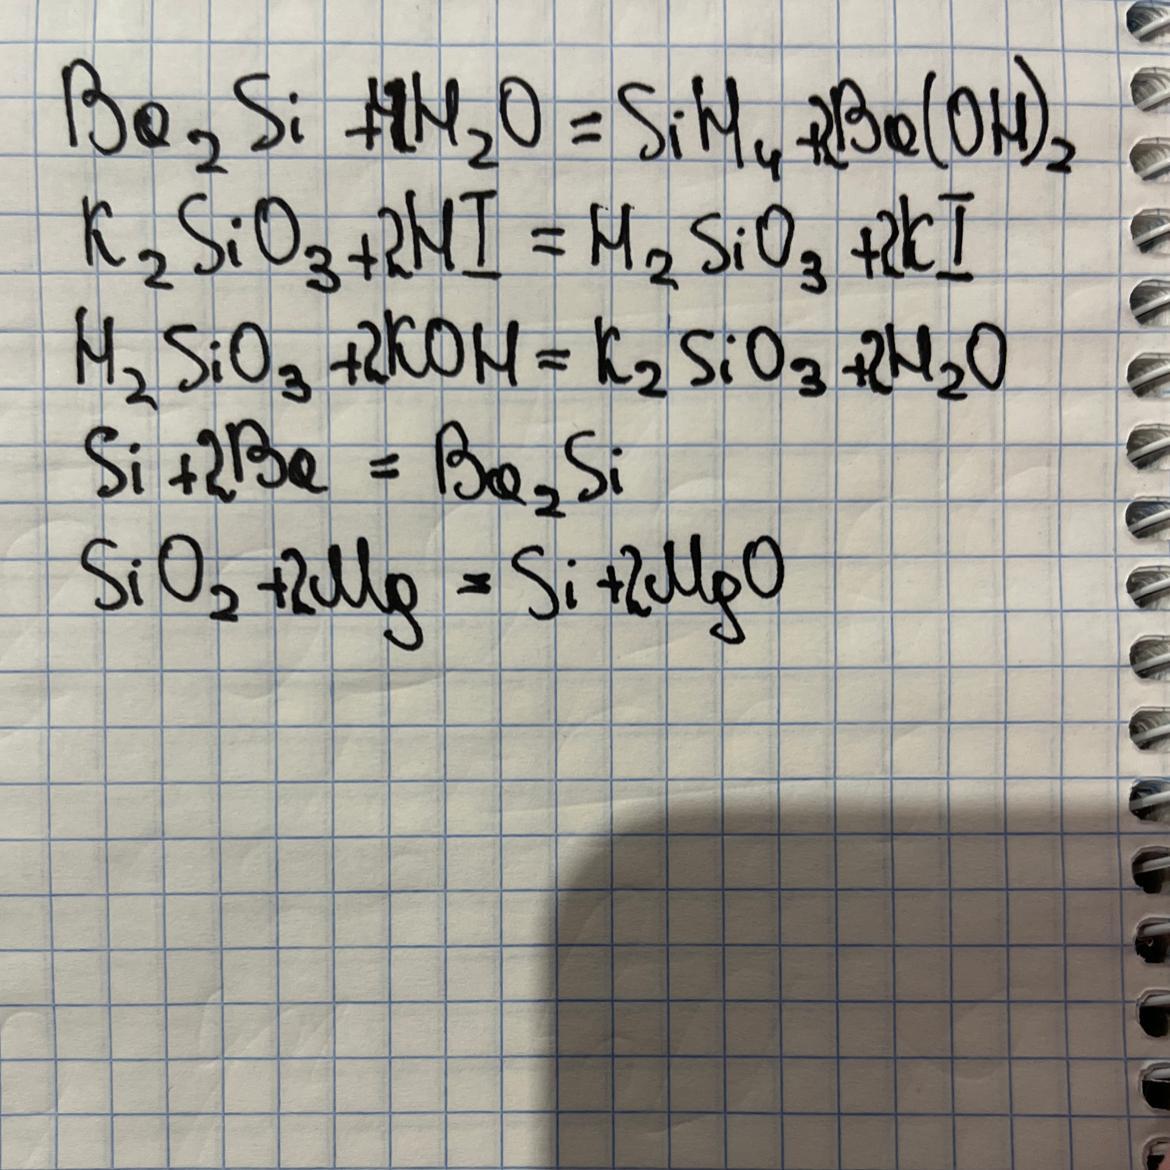 Be₂Si + 4H₂O = SiH₄ + 2Be(OH)₂
K₂SiO₃ + 2HI = H₂SiO₃ + 2KI
H₂SiO₃ + 2KOH = K₂SiO₃ + 2H₂O
Si + 2Be = Be₂Si
SiO₂ + 2Mg = Si + 2MgO